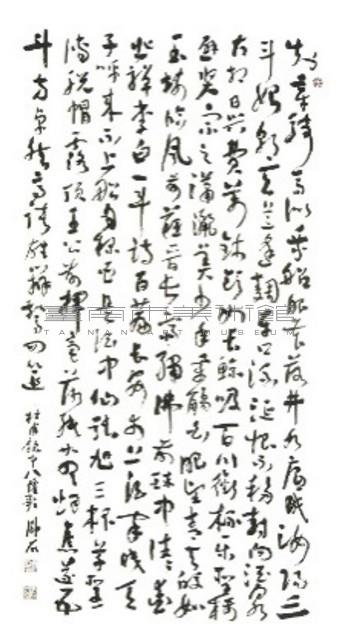 知章騎馬似乘船眼花落井水底眠汝陽三
斗始朝天道逢麴車口流涎恨不移封向酒泉
左相日興費萬錢飲如長鯨吸百川銜杯樂聖稱
避賢宗之瀟灑美少年舉觴白眼望青天皎如
玉樹臨風前蘇晉長齋繡佛前醉中往往愛
逃禪李白一斗詩百篇長安市上酒家眠天
子呼來不上船自稱臣是酒中仙張旭三杯草聖
傳脫帽露頂王公前揮毫落紙如雲煙焦遂五
斗方卓然高談雄辯驚四筵
杜甫飲中八僊歌 卧石
臺南市美術館
TAINAN ART MUSEUM